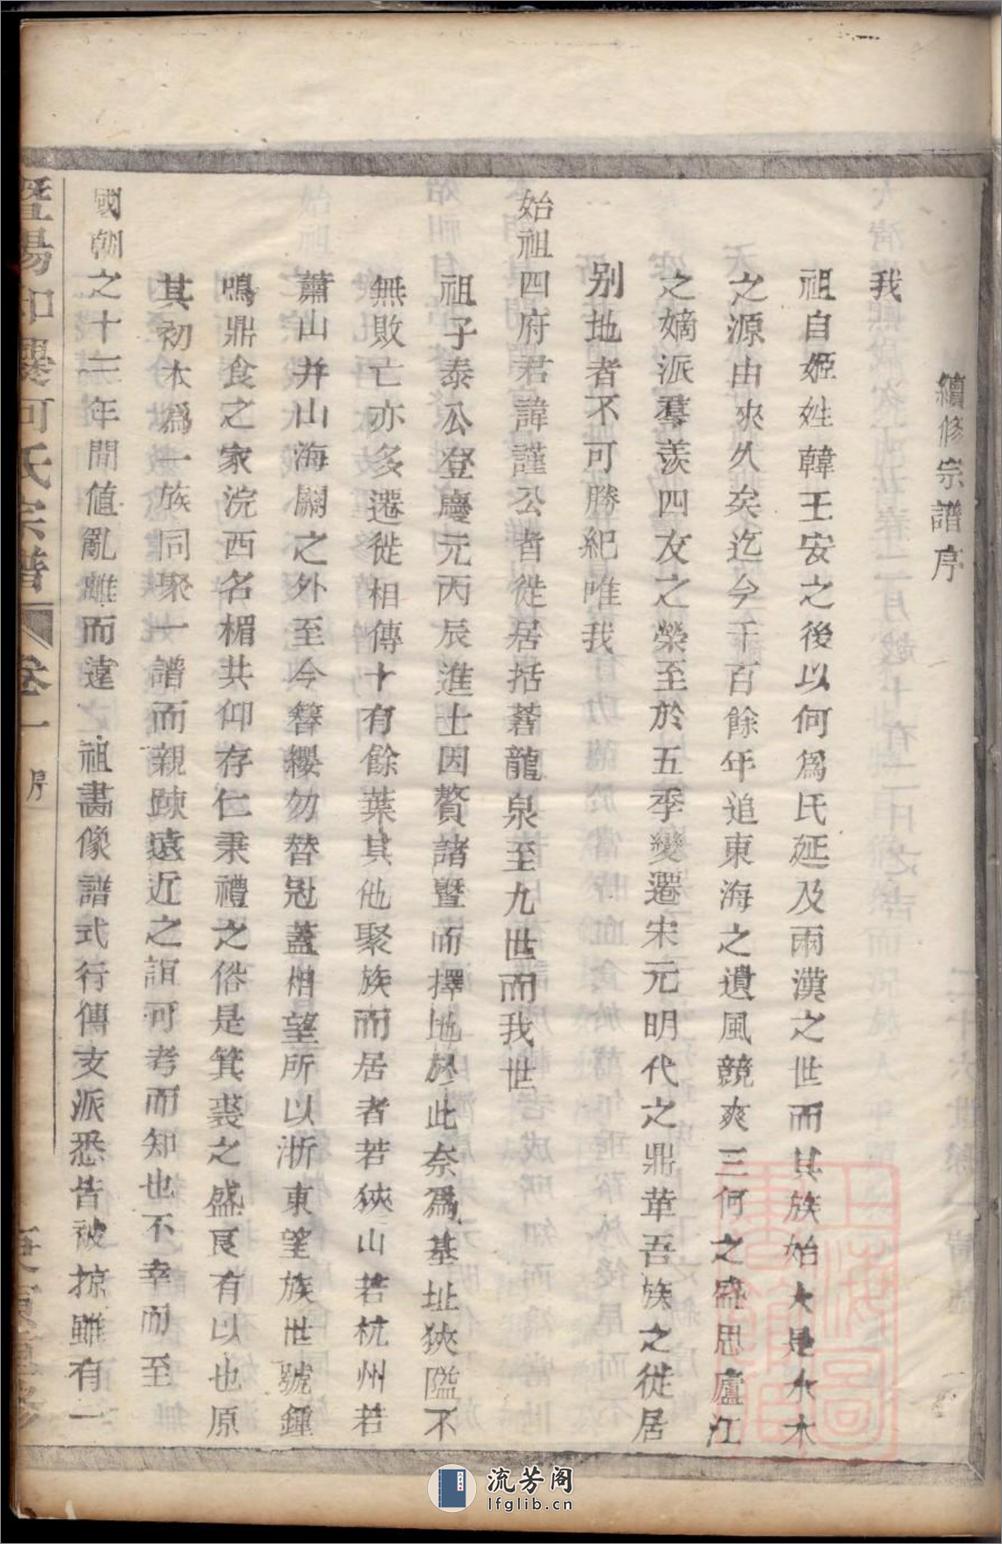 續修宗譜序
我
祖自姬姓韓王安之後以何爲氏延及兩漢之世而其族始大是水木
之源由來久矣迄今千百餘年追東海之遺風競爽三何之盛思廬江
之嫡派羣羨四友之榮至於五季變遷宋元明代之鼎革吾族之徙居
别地者不可勝紀唯我
始祖四府君諱謹公者徙居括蒼龍泉至九世而我世
祖子泰公登慶元丙辰進士因贅諸暨而擇地於此奈爲基址狹隘不
無敗亡亦多遷徙相傳十有餘葉其他聚族而居者若狹山若杭州若
蕭山并山海關之外至今簪纓勿替冠蓋相望所以浙東望族世號鍾
鳴鼎食之家浣西名楣共仰存仁秉禮之俗是箕裘之盛良有以也原
其初本爲一族同聚一譜而親踈遠近之誼可考而知也不幸而至
國朝之十三年間值亂離而違 祖畵像譜式行傳支派悉皆被掠雖有一
暨陽 何氏宗譜 卷一
流芳阁
lfglib.cn